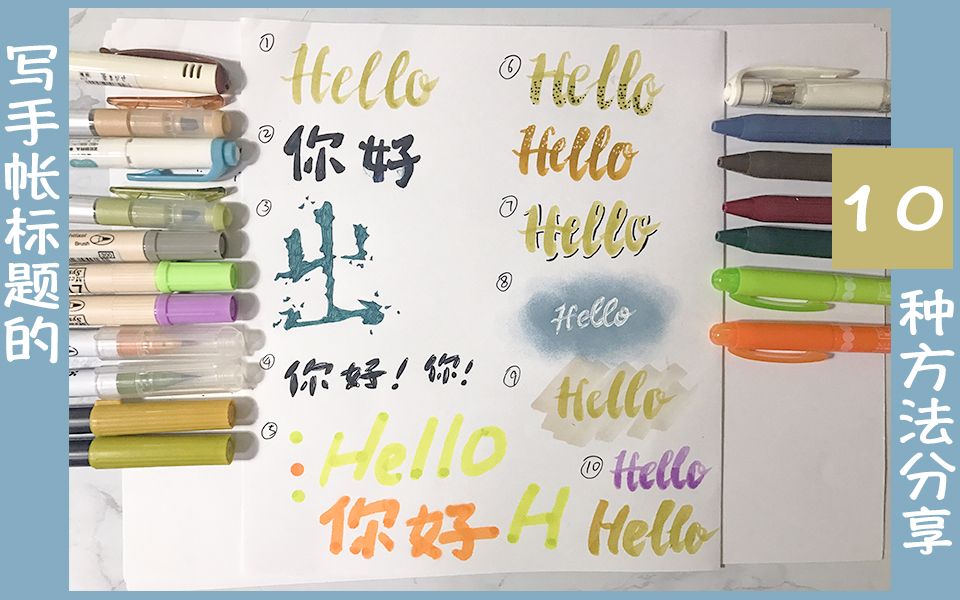 写手帐标题的
10
种方法分享
① Hello
② 你好
③ 出
④ 你好！你！
⑤ Hello
你好 H
⑥ Hello
Hello
⑦ Hello
⑧ Hello
⑨ Hello
⑩ Hello
Hello